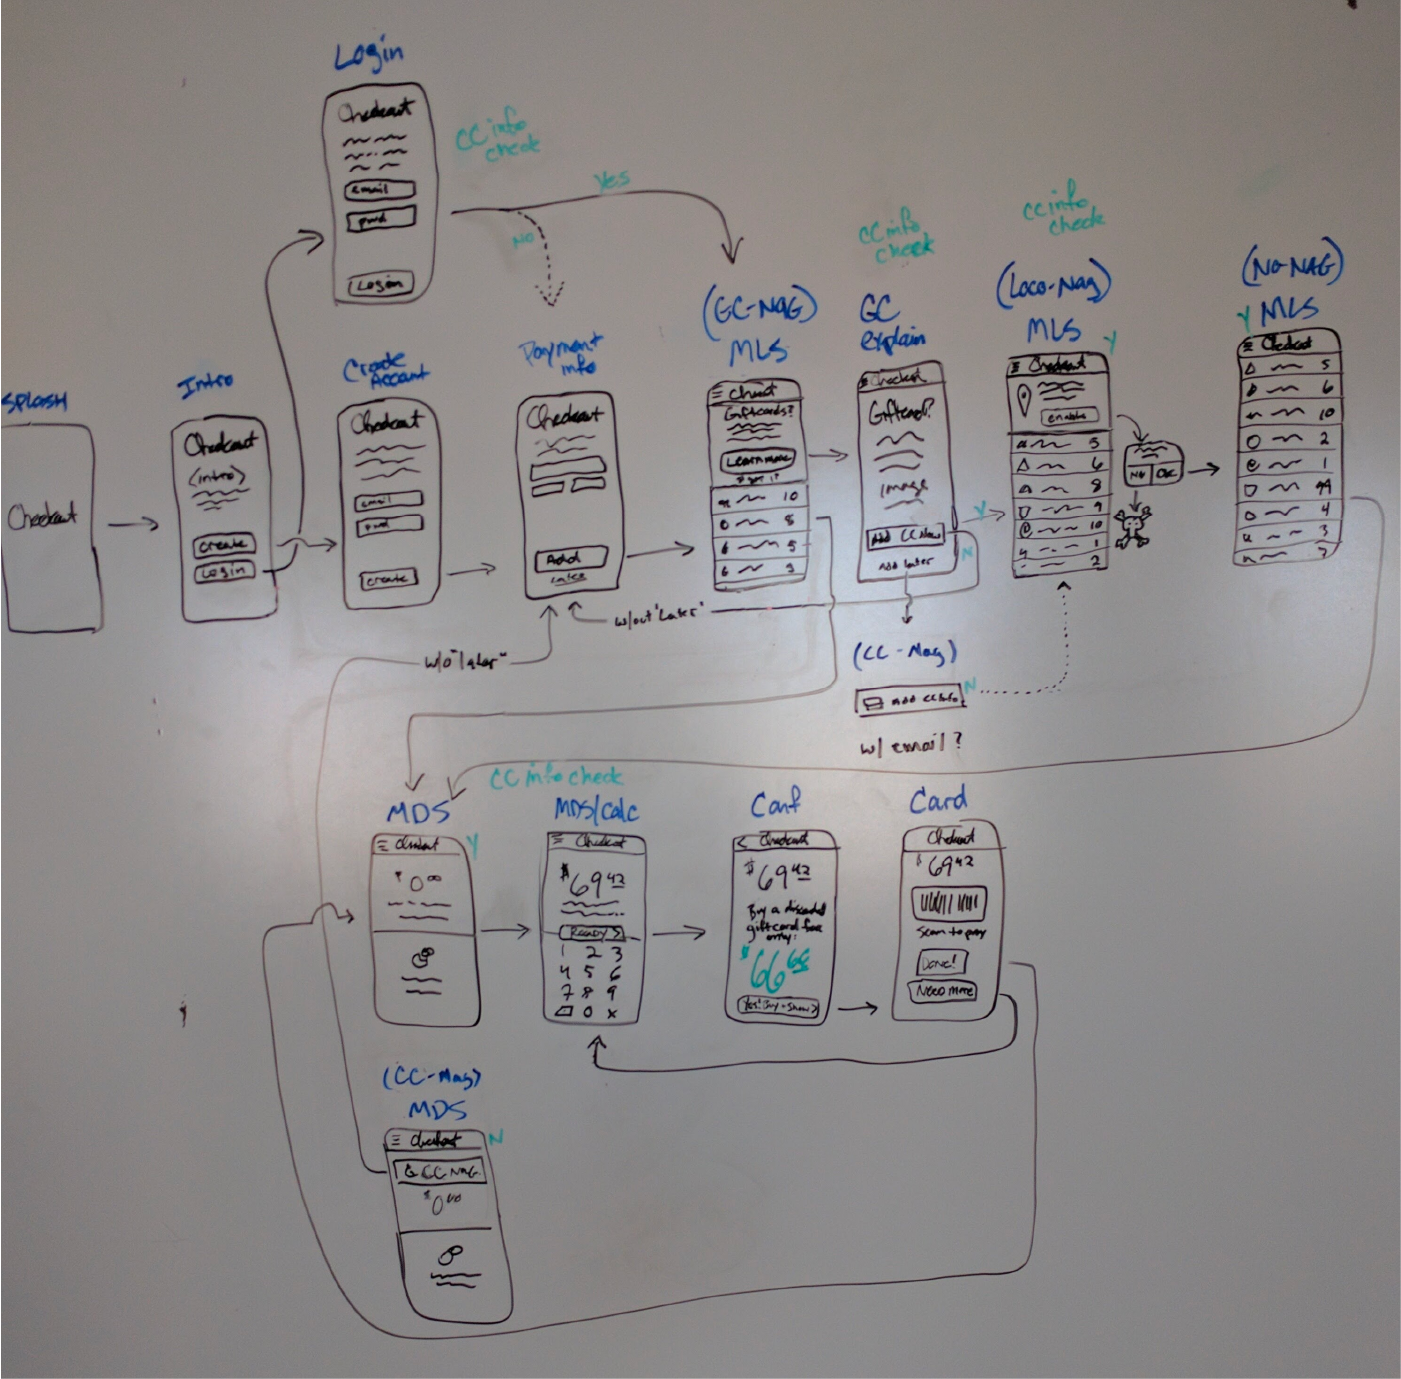 Login
Checkout
email
pwd
Login
CC info
check
Yes
NO
SPLASH
Checkout
Intro
Checkout
(intro)
create
Login
Create
Account
Checkout
email
pwd
create
Payment
info
Checkout
Add
Later
(GC-NAG)
MLS
Giftcards?
Learn more
10
8
5
3
CC info
check
GC
explain
Checkout
Giftcard?
image
Add CC Now
Add Later
Y
N
CC info
check
(Loco-Nag)
MLS
Y
Checkout
enable
5
6
8
9
10
1
2
NO
OK
(NO-NAG)
Y MLS
Checkout
5
6
10
2
1
99
4
3
7
w/out "Later"
w/o "Later"
(CC-Nag)
Add CC Info
N
w/ email?
MDS
Y
$0.00
CC info check
MDS/calc
Checkout
$69.42
Ready >
1 2 3
4 5 6
7 8 9
0 x
Conf
< Checkout
$69.42
Buy a discounted
giftcard for
only:
$66.68
Yes! Buy + Show >
Card
Checkout
$69.42
Scan to pay
Done!
Need more
(CC-Nag)
MDS
Checkout
N
CC NAG
$0.00